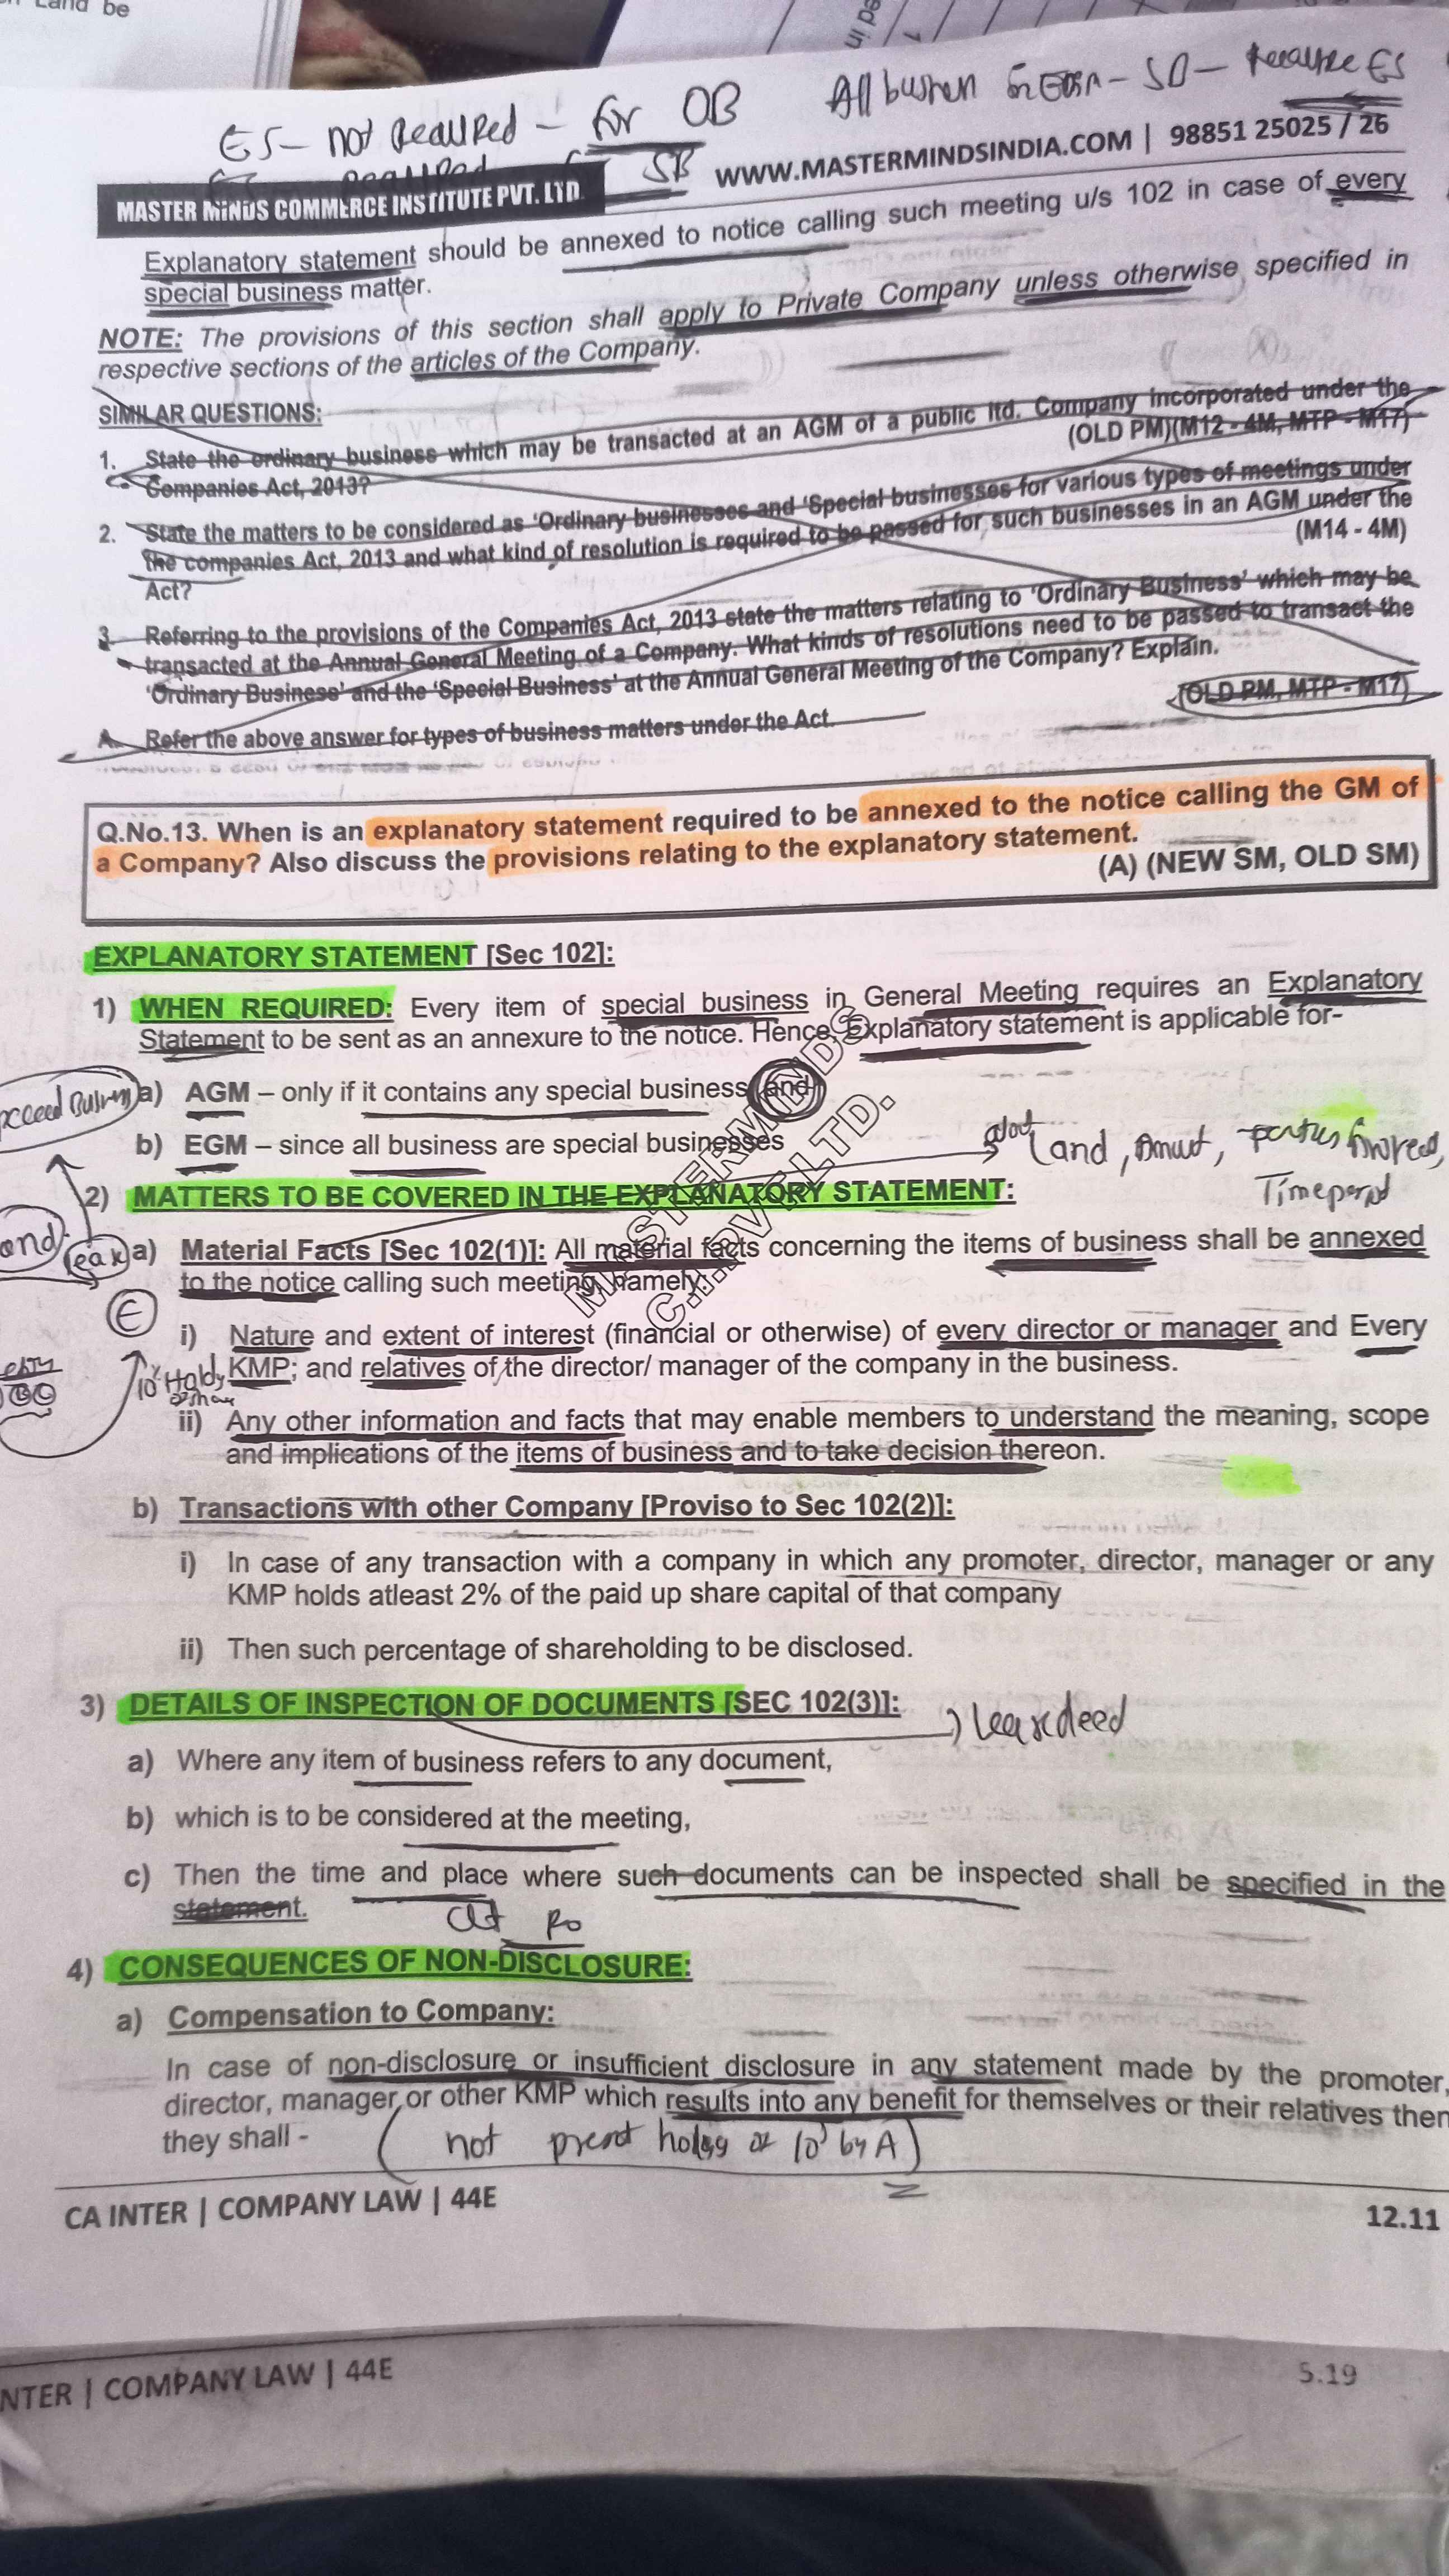 Land be
ed in
ES- not Required - for OB All business in EGM - SB - Require ES
SB WWW.MASTERMINDSINDIA.COM | 98851 25025 / 26
MASTER MINDS COMMERCE INSTITUTE PVT. LTD.
Explanatory statement should be annexed to notice calling such meeting u/s 102 in case of every
special business matter.
NOTE: The provisions of this section shall apply to Private Company unless otherwise specified in
respective sections of the articles of the Company.
SIMILAR QUESTIONS:
1. State the ordinary business which may be transacted at an AGM of a public ltd. Company incorporated under the
Companies Act, 2013? (OLD PM)(M12 - 4M, MTP - M17)
2. State the matters to be considered as 'Ordinary businesses and 'Special businesses for various types of meetings under
the companies Act, 2013 and what kind of resolution is required to be passed for such businesses in an AGM under the
Act? (M14 - 4M)
3. Referring to the provisions of the Companies Act, 2013 state the matters relating to 'Ordinary Business' which may be
transacted at the Annual General Meeting of a Company. What kinds of resolutions need to be passed to transact the
'Ordinary Business' and the 'Special Business' at the Annual General Meeting of the Company? Explain.
(OLD PM, MTP - M17)
A. Refer the above answer for types of business matters under the Act.
Q.No.13. When is an explanatory statement required to be annexed to the notice calling the GM of
a Company? Also discuss the provisions relating to the explanatory statement.
(A) (NEW SM, OLD SM)
EXPLANATORY STATEMENT [Sec 102]:
1) WHEN REQUIRED: Every item of special business in General Meeting requires an Explanatory
Statement to be sent as an annexure to the notice. Hence, Explanatory statement is applicable for-
a) AGM – only if it contains any special business and
b) EGM – since all business are special businesses
MASTERMINDS
C.I. PVT LTD.
Land, Amut, parties
Timeperod
2) MATTERS TO BE COVERED IN THE EXPLANATORY STATEMENT:
a) Material Facts [Sec 102(1)]: All material facts concerning the items of business shall be annexed
to the notice calling such meeting, namely:
i) Nature and extent of interest (financial or otherwise) of every director or manager and Every
KMP; and relatives of the director/ manager of the company in the business.
ii) Any other information and facts that may enable members to understand the meaning, scope
and implications of the items of business and to take decision thereon.
b) Transactions with other Company [Proviso to Sec 102(2)]:
i) In case of any transaction with a company in which any promoter, director, manager or any
KMP holds atleast 2% of the paid up share capital of that company
ii) Then such percentage of shareholding to be disclosed.
3) DETAILS OF INSPECTION OF DOCUMENTS [SEC 102(3)]:
Leasedeed
a) Where any item of business refers to any document,
b) which is to be considered at the meeting,
c) Then the time and place where such documents can be inspected shall be specified in the
statement.
4) CONSEQUENCES OF NON-DISCLOSURE:
a) Compensation to Company:
In case of non-disclosure or insufficient disclosure in any statement made by the promoter,
director, manager or other KMP which results into any benefit for themselves or their relatives then
they shall -
CA INTER | COMPANY LAW | 44E 12.11
NTER | COMPANY LAW | 44E 5.19